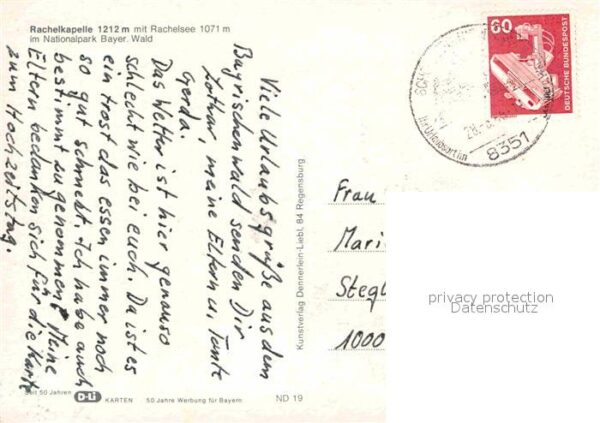 Rachelkapelle 1212 m mit Rachelsee 1071 m
im Nationalpark Bayer. Wald
Viele Urlaubsgrüße aus dem
Bayrischen wald senden Dir
Lothar, meine Eltern u. Tante
Gerda.
Das Wetter ist hier genauso
schlecht wie bei euch. Da ist es
ein trost das essen immer noch
so gut schmeckt. Ich habe auch
bestimmt zu genommen. Meine
Eltern bedanken sich für die Karte
zum Hochzeitstag.
Seit 50 Jahren D-Li KARTEN 50 Jahre Werbung für Bayern ND 19
Kunstverlag Dennerlein-Liebl, 84 Regensburg
60
DEUTSCHE BUNDESPOST
8351
Frau
Mari
Stegl
1000
privacy protection
Datenschutz